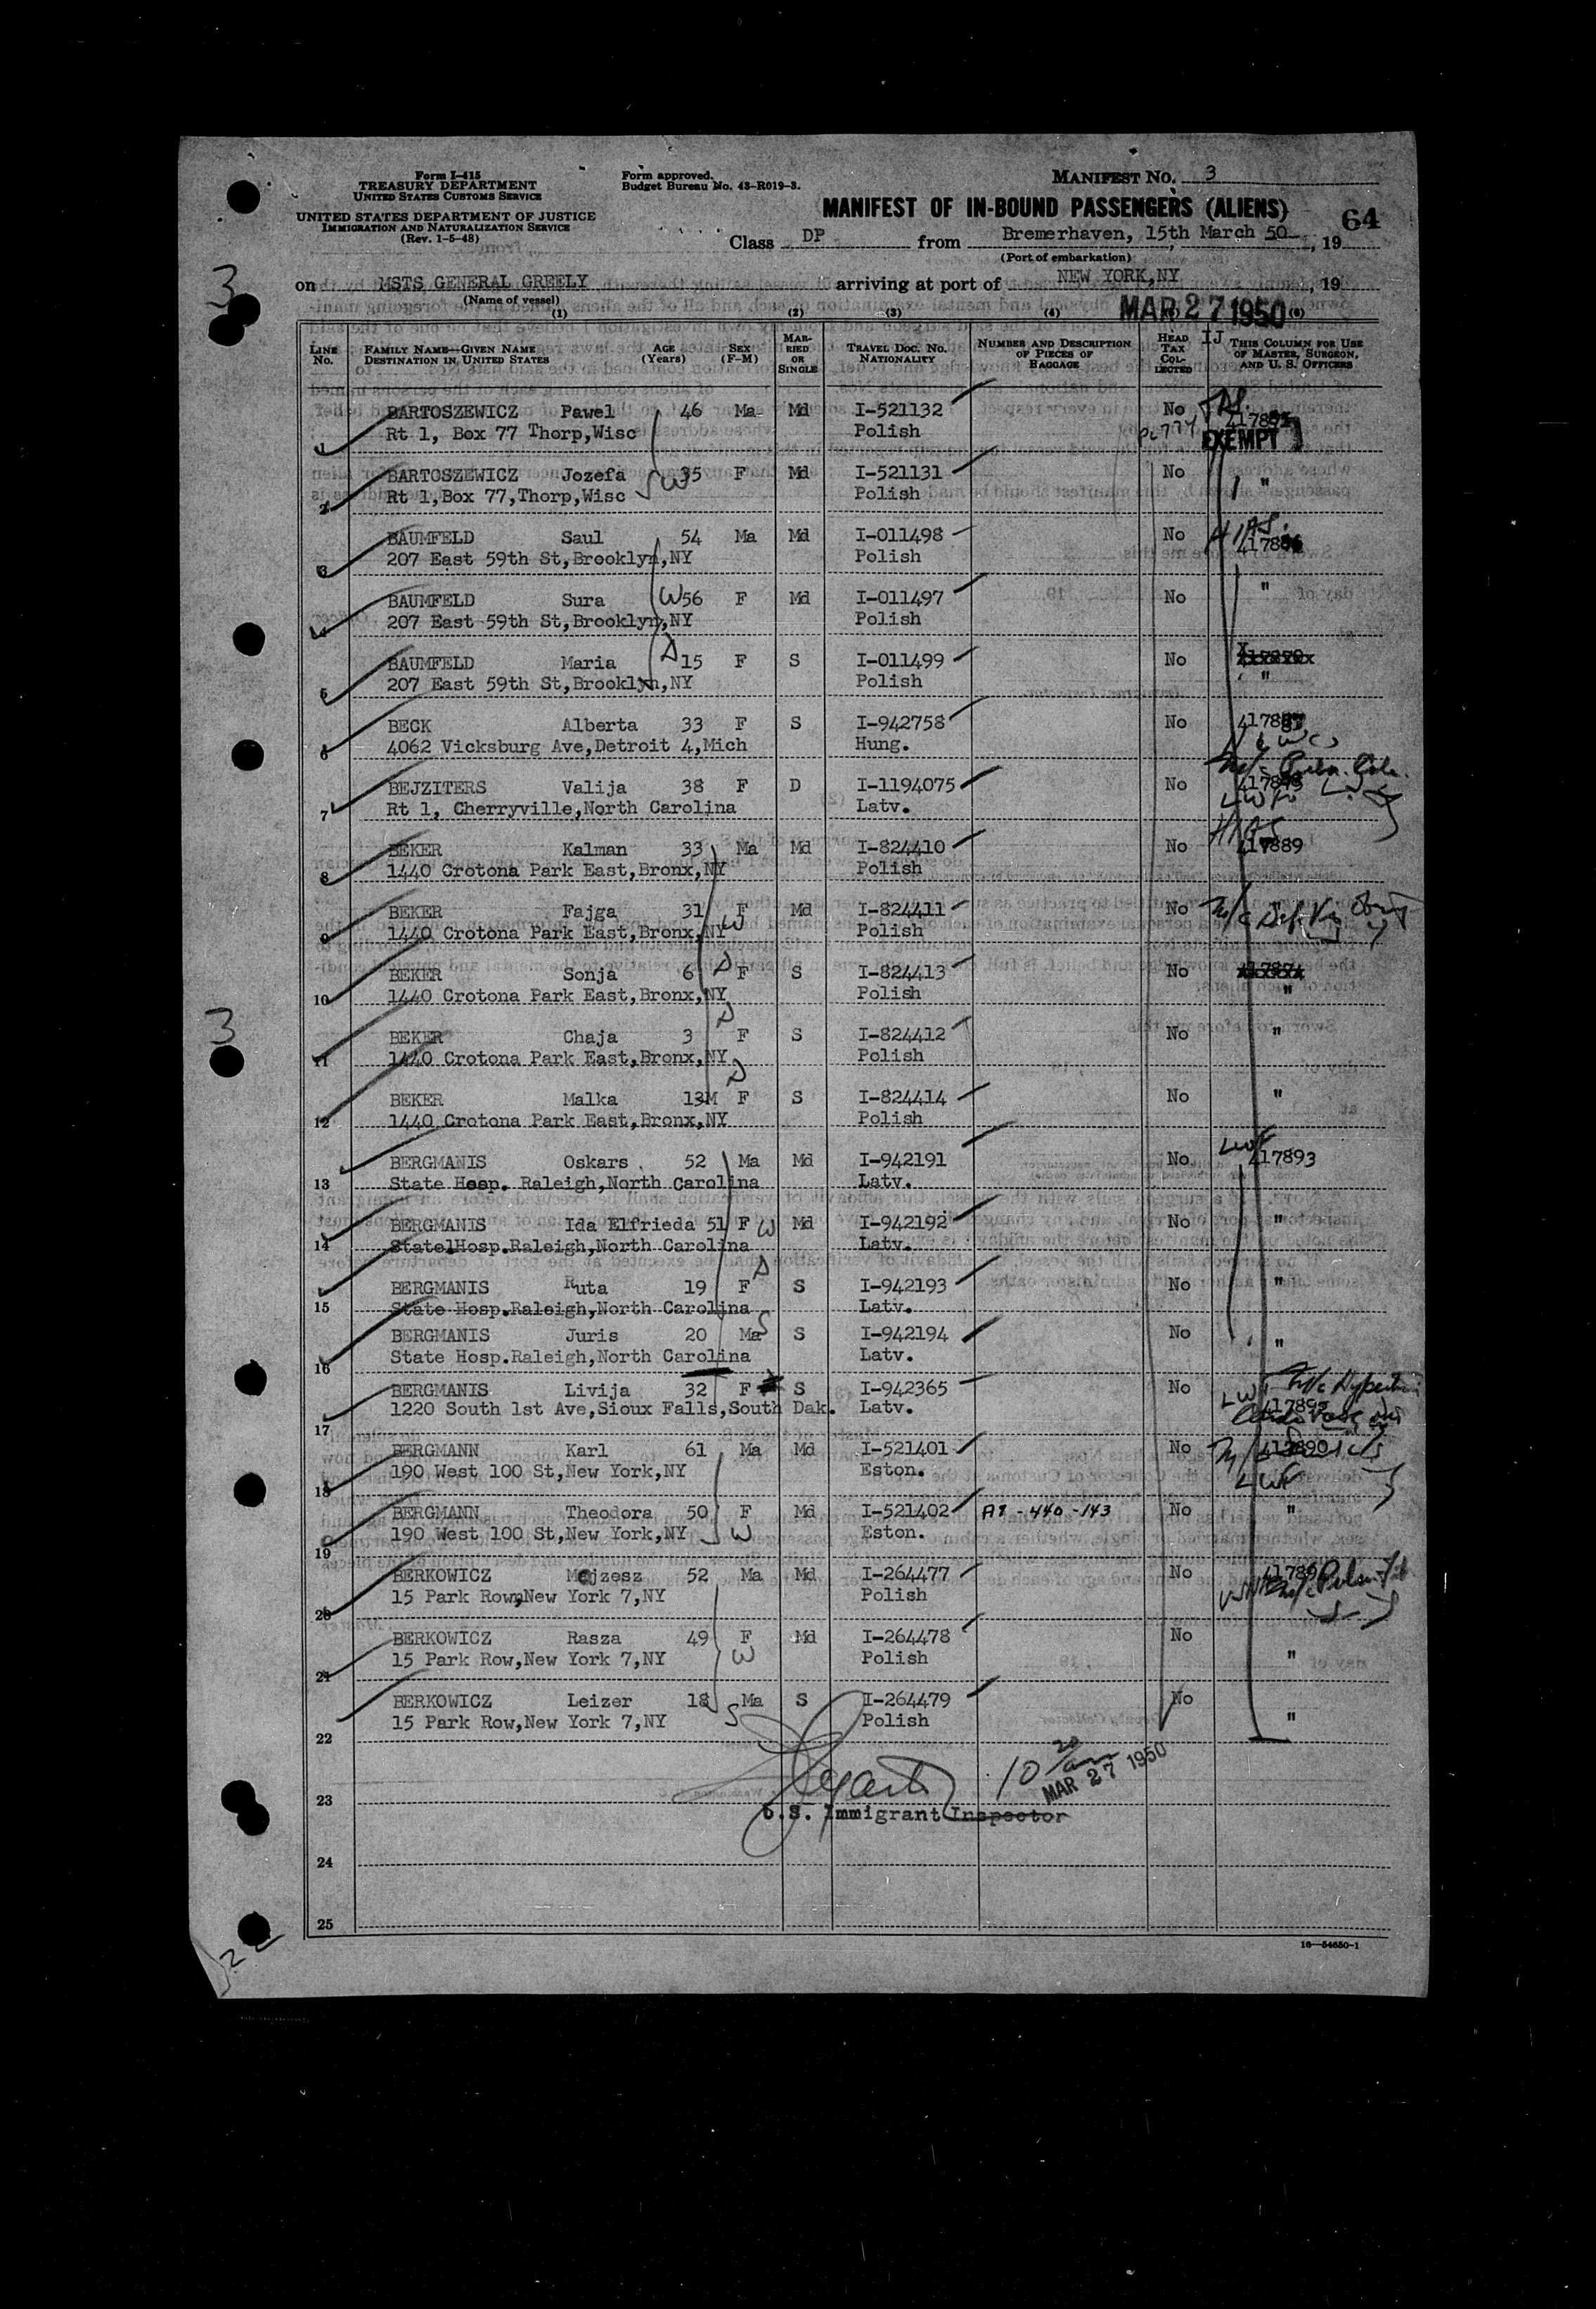 Form I-415
TREASURY DEPARTMENT
UNITED STATES CUSTOMS SERVICE
UNITED STATES DEPARTMENT OF JUSTICE
IMMIGRATION AND NATURALIZATION SERVICE
(Rev. 1-5-48)
Form approved.
Budget Bureau No. 43-R019-3.
MANIFEST NO. 3
MANIFEST OF IN-BOUND PASSENGERS (ALIENS)
64
Class DP from Bremerhaven, 15th March 50, 19
(Port of embarkation)
on MSTS GENERAL GREELY arriving at port of NEW YORK,NY, 19
(Name of vessel)
MAR 27 1950
(1) (2) (3) (4) (6)
LINE No. FAMILY NAME—GIVEN NAME DESTINATION IN UNITED STATES AGE (Years) SEX (F-M) MARRIED OR SINGLE TRAVEL DOC. NO. NATIONALITY NUMBER AND DESCRIPTION OF PIECES OF BAGGAGE HEAD TAX COLLECTED IJ THIS COLUMN FOR USE OF MASTER, SURGEON, AND U. S. OFFICERS
BARTOSZEWICZ Pawel 46 Ma Md I-521132 No
1 Rt 1, Box 77 Thorp,Wisc Polish EXEMPT
BARTOSZEWICZ Jozefa W 35 F Md I-521131 No "
2 Rt 1,Box 77,Thorp,Wisc Polish
BAUMFELD Saul 54 Ma Md I-011498 No HIAS
3 207 East 59th St,Brooklyn,NY Polish 417886
BAUMFELD Sura W 56 F Md I-011497 No "
4 207 East 59th St,Brooklyn,NY Polish
BAUMFELD Maria D 15 F S I-011499 No
5 207 East 59th St,Brooklyn,NY Polish "
BECK Alberta 33 F S I-942758 No 417887
6 4062 Vicksburg Ave,Detroit 4,Mich Hung.
BEJZITERS Valija 38 F D I-1194075 No
7 Rt 1, Cherryville,North Carolina Latv.
HIAS
BEKER Kalman 33 Ma Md I-824410 No 417889
8 1440 Crotona Park East,Bronx,NY Polish
BEKER Fajga 31 F Md I-824411 No
9 1440 Crotona Park East,Bronx,NY W Polish
BEKER Sonja 6 D F S I-824413 No
10 1440 Crotona Park East,Bronx,NY Polish "
BEKER Chaja 3 D F S I-824412 No "
11 1440 Crotona Park East,Bronx,NY Polish
BEKER Malka 13M D F S I-824414 No "
12 1440 Crotona Park East,Bronx,NY Polish
LWF
BERGMANIS Oskars 52 Ma Md I-942191 No 417893
13 State Hosp. Raleigh,North Carolina Latv.
BERGMANIS Ida Elfrieda 51 F W Md I-942192 No "
14 State Hosp.Raleigh,North Carolina Latv.
BERGMANIS Ruta 19 F D S I-942193 No "
15 State Hosp.Raleigh,North Carolina Latv.
BERGMANIS Juris 20 Ma S S I-942194 No "
16 State Hosp.Raleigh,North Carolina Latv.
BERGMANIS Livija 32 F S I-942365 No
17 1220 South 1st Ave,Sioux Falls,South Dak. Latv.
BERGMANN Karl 61 Ma Md I-521401 No 417890
18 190 West 100 St,New York,NY Eston. LWF
BERGMANN Theodora 50 F Md I-521402 A7-440-143 No "
19 190 West 100 St,New York,NY W Eston.
BERKOWICZ Mojzesz 52 Ma Md I-264477 No
20 15 Park Row,New York 7,NY Polish
BERKOWICZ Rasza 49 F Md I-264478 No
21 15 Park Row,New York 7,NY W Polish "
BERKOWICZ Leizer 18 Ma S I-264479 No
22 15 Park Row,New York 7,NY S Polish "
10 20 am
MAR 27 1950
23
U.S. Immigrant Inspector
24
25
16—54650-1
3
3
22